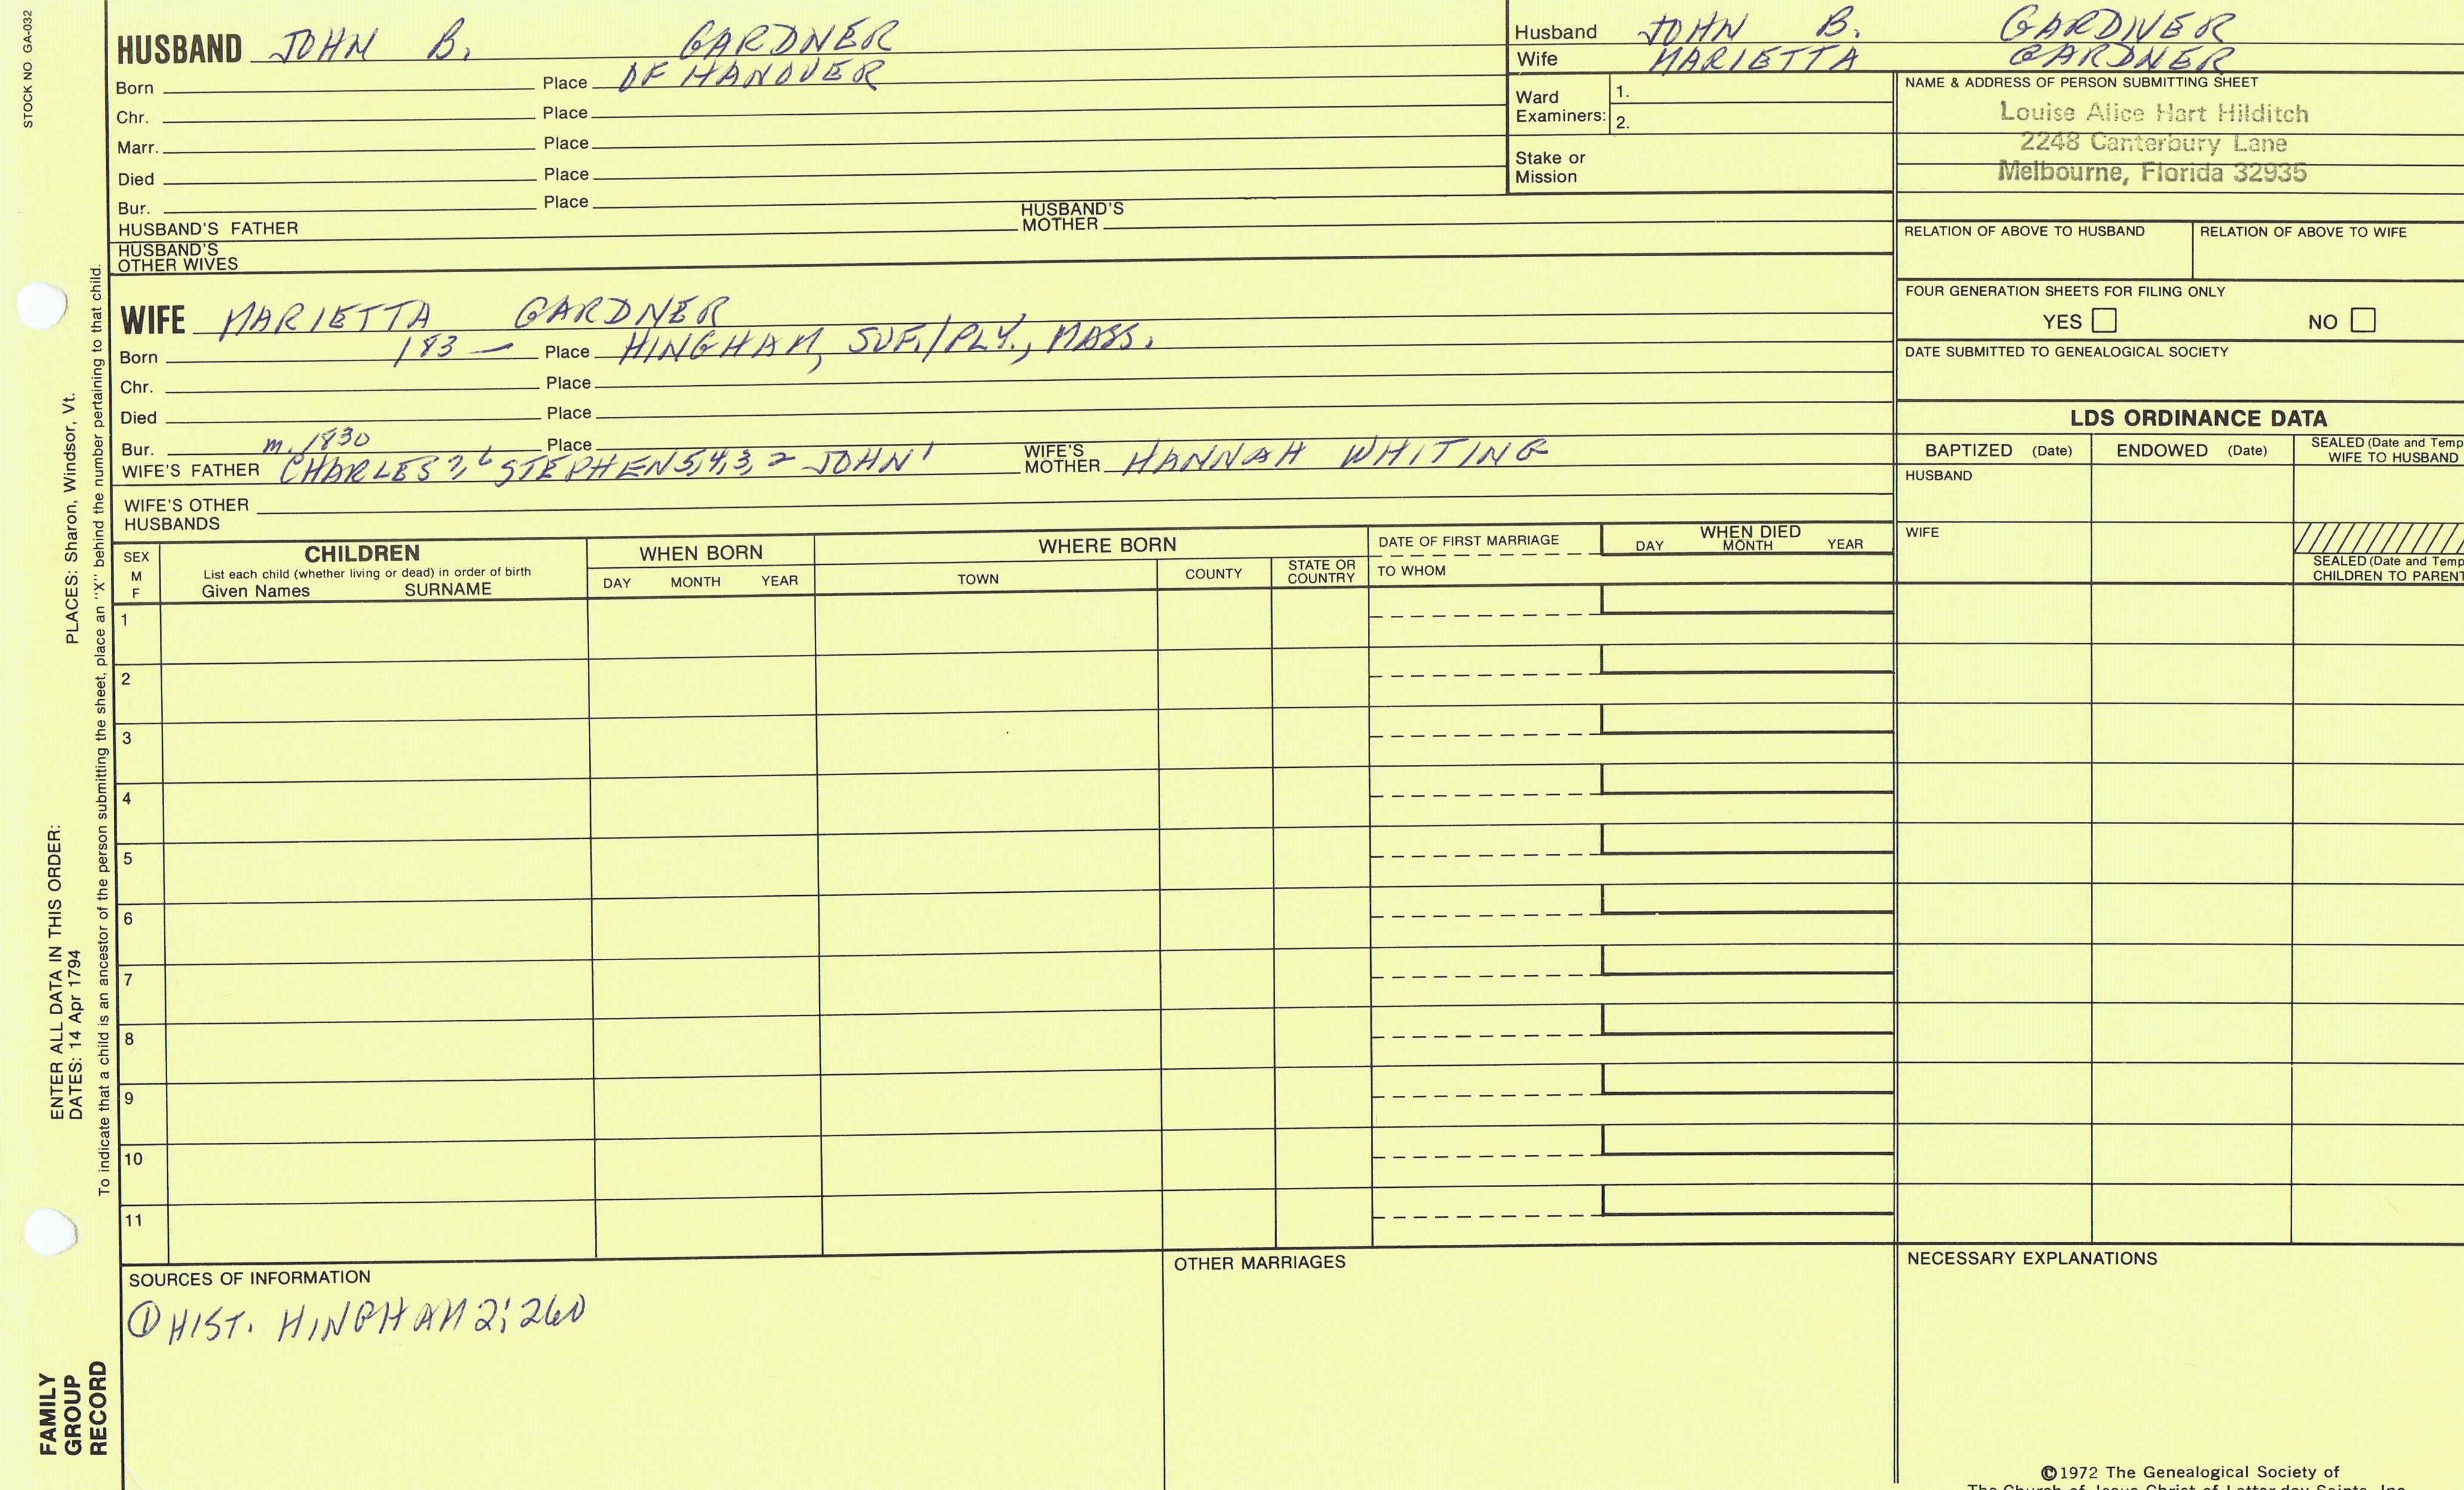 STOCK NO. GA-032
HUSBAND JOHN B. GARDNER
Born Place OF HANOVER
Chr. Place
Marr. Place
Died Place
Bur. Place
HUSBAND'S FATHER HUSBAND'S MOTHER
HUSBAND'S OTHER WIVES
Husband JOHN B. GARDNER
Wife MARIETTA GARDNER
Ward Examiners: 1.
2.
Stake or Mission
NAME & ADDRESS OF PERSON SUBMITTING SHEET
Louise Alice Hart Hilditch
2248 Canterbury Lane
Melbourne, Florida 32935
RELATION OF ABOVE TO HUSBAND RELATION OF ABOVE TO WIFE
FOUR GENERATION SHEETS FOR FILING ONLY
YES NO
DATE SUBMITTED TO GENEALOGICAL SOCIETY
WIFE MARIETTA GARDNER
Born 183— Place HINGHAM, SUF./PLY., MASS.
Chr. Place
Died Place
Bur. Place
m. 1830
WIFE'S FATHER CHARLES 7, 6 STEPHEN 5,4,3,2 JOHN 1 WIFE'S MOTHER HANNAH WHITING
WIFE'S OTHER HUSBANDS
LDS ORDINANCE DATA
BAPTIZED (Date) ENDOWED (Date) SEALED (Date and Temp
WIFE TO HUSBAND
HUSBAND
WIFE
SEALED (Date and Temp
CHILDREN TO PARENT
SEX M F
CHILDREN
List each child (whether living or dead) in order of birth
Given Names SURNAME
WHEN BORN
DAY MONTH YEAR
WHERE BORN
TOWN COUNTY STATE OR COUNTRY
DATE OF FIRST MARRIAGE
TO WHOM
WHEN DIED
DAY MONTH YEAR
1
2
3
4
5
6
7
8
9
10
11
SOURCES OF INFORMATION
① HIST. HINGHAM 2:260
OTHER MARRIAGES
NECESSARY EXPLANATIONS
©1972 The Genealogical Society of
The Church of Jesus Christ of Latter-day Saints, Inc.
PLACES: Sharon, Windsor, Vt.
ENTER ALL DATA IN THIS ORDER:
DATES: 14 Apr 1794
To indicate that a child is an ancestor of the person submitting the sheet, place an "X" behind the number pertaining to that child.
FAMILY
GROUP
RECORD